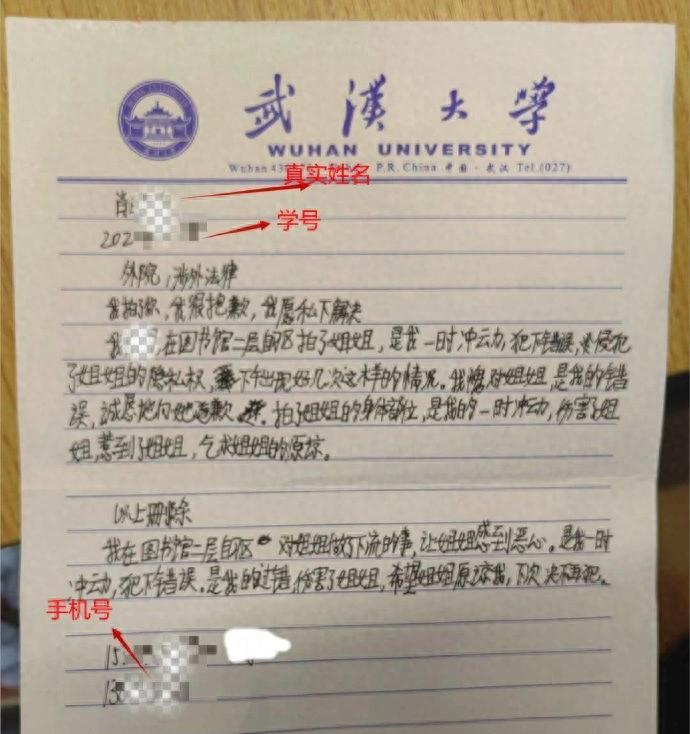 武漢大學
WUHAN UNIVERSITY
P.R. China 中国·武汉 Tel.(027)
真实姓名
肖
202
学号
外院,涉外法律
我拍了你,我很抱歉,我愿私下解决
我 ,在图书馆二层自习区拍了姐姐,是我一时冲动,犯下错误,侵犯
了姐姐的隐私权, 下午出现好几次这样的情况。我愧对姐姐,是我的错
误,诚恳地向她道歉。拍了姐姐的身体部位,是我的一时冲动,伤害了姐
姐,惹到了姐姐,乞求姐姐的原谅。
以上删除
我在图书馆二层自习区 对姐姐做了下流的事,让姐姐感到恶心。是我一时
冲动,犯下错误。是我的过错,伤害了姐姐,希望姐姐原谅我,下次决不再犯。
手机号
15
13